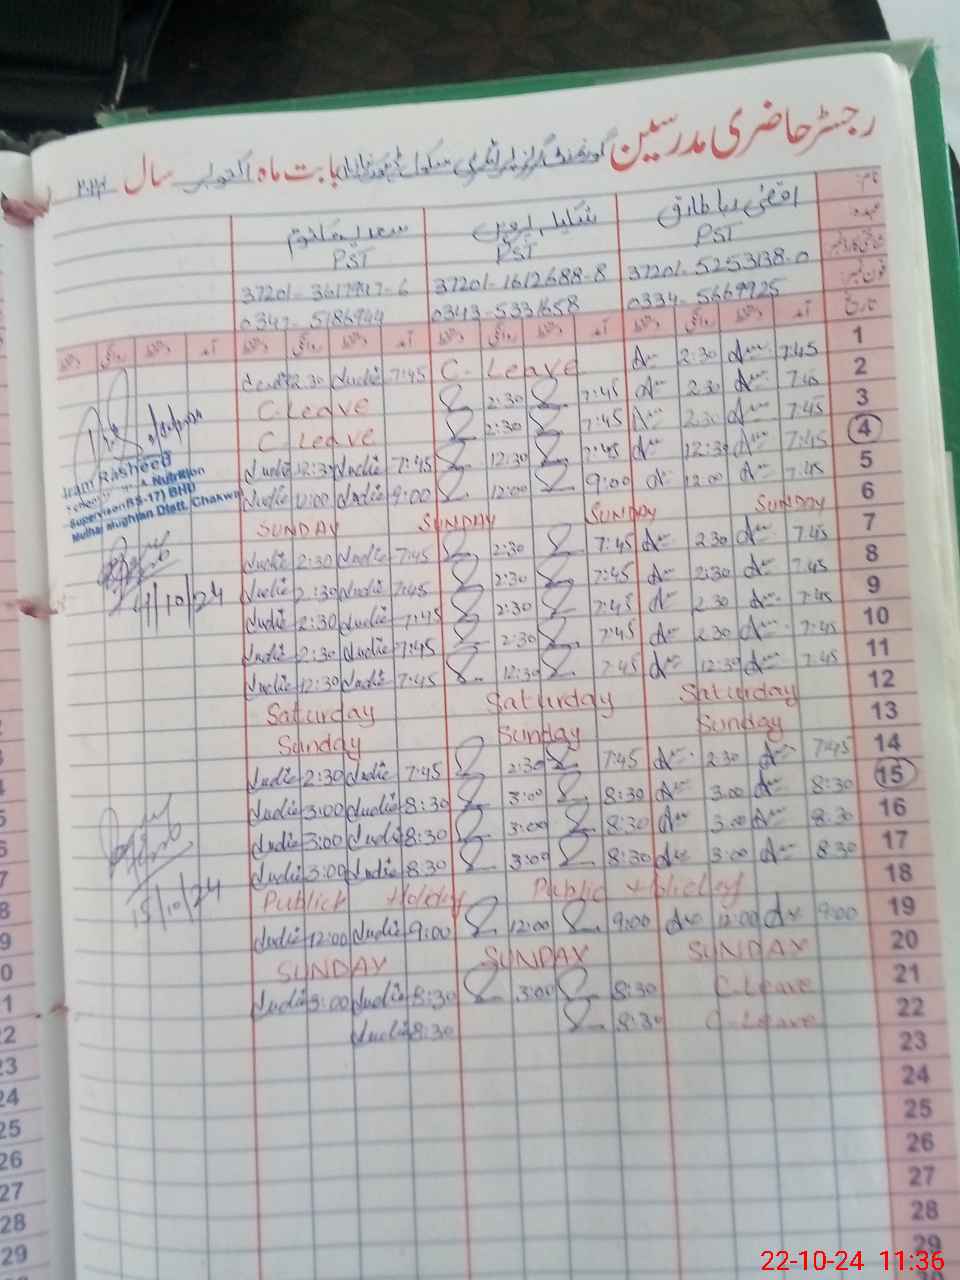 رجسٹر حاضری مدرسین گورنمنٹ گرلز پرائمری سکول بابت ماہ اکتوبر سال ۲۰۲۴
نام
اقصیٰ رباب طارق شکیلہ پروین سعدیہ کلثوم
عہدہ PST PST PST
37201-5253138-0 37201-1612688-8 37201-3617917-6
فون نمبر 0334-5669925 0343-5331658 0347-5186944
تاریخ آمد دستخط روانگی دستخط آمد دستخط روانگی دستخط آمد دستخط روانگی دستخط آمد دستخط روانگی دستخط
1 7:45 2:30 C. Leave 7:45 2:30
2 7:45 2:30 7:45 2:30 C Leave
3 7:45 2:30 7:45 2:30 C Leave
4 7:45 12:30 7:45 12:30 7:45 12:30
5 7:45 12:00 9:00 12:00 9:00 12:00
6 SUNDAY SUNDAY SUNDAY SUNDAY
7 7:45 2:30 7:45 2:30 7:45 2:30
8 7:45 2:30 7:45 2:30 7:45 2:30
9 7:45 2:30 7:45 2:30 7:45 2:30
10 7:45 2:30 7:45 2:30 7:45 2:30
11 7:45 12:30 7:45 12:30 7:45 12:30
12 Saturday Saturday Saturday
13 Sunday Sunday Sunday
14 7:45 2:30 7:45 2:30 7:45 2:30
15 8:30 3:00 8:30 3:00 8:30 3:00
16 8:30 3:00 8:30 3:00 8:30 3:00
17 8:30 3:00 8:30 3:00 8:30 3:00
18 Public Holiday Publick Holiday
19 9:00 12:00 9:00 12:00 9:00 12:00
20 SUNDAY SUNDAY SUNDAY
21 C.Leave 8:30 3:00 8:30 3:00
22 C-Leave 8:30 8:30
23
24
25
26
27
28
29
Iram Rasheed
School Health & Nutrition
Supervisor (BS-17) BHU
Mulhal Mughlan Distt. Chakwal
11/10/24
15/10/24
22
23
24
25
26
27
28
29
22-10-24 11:36